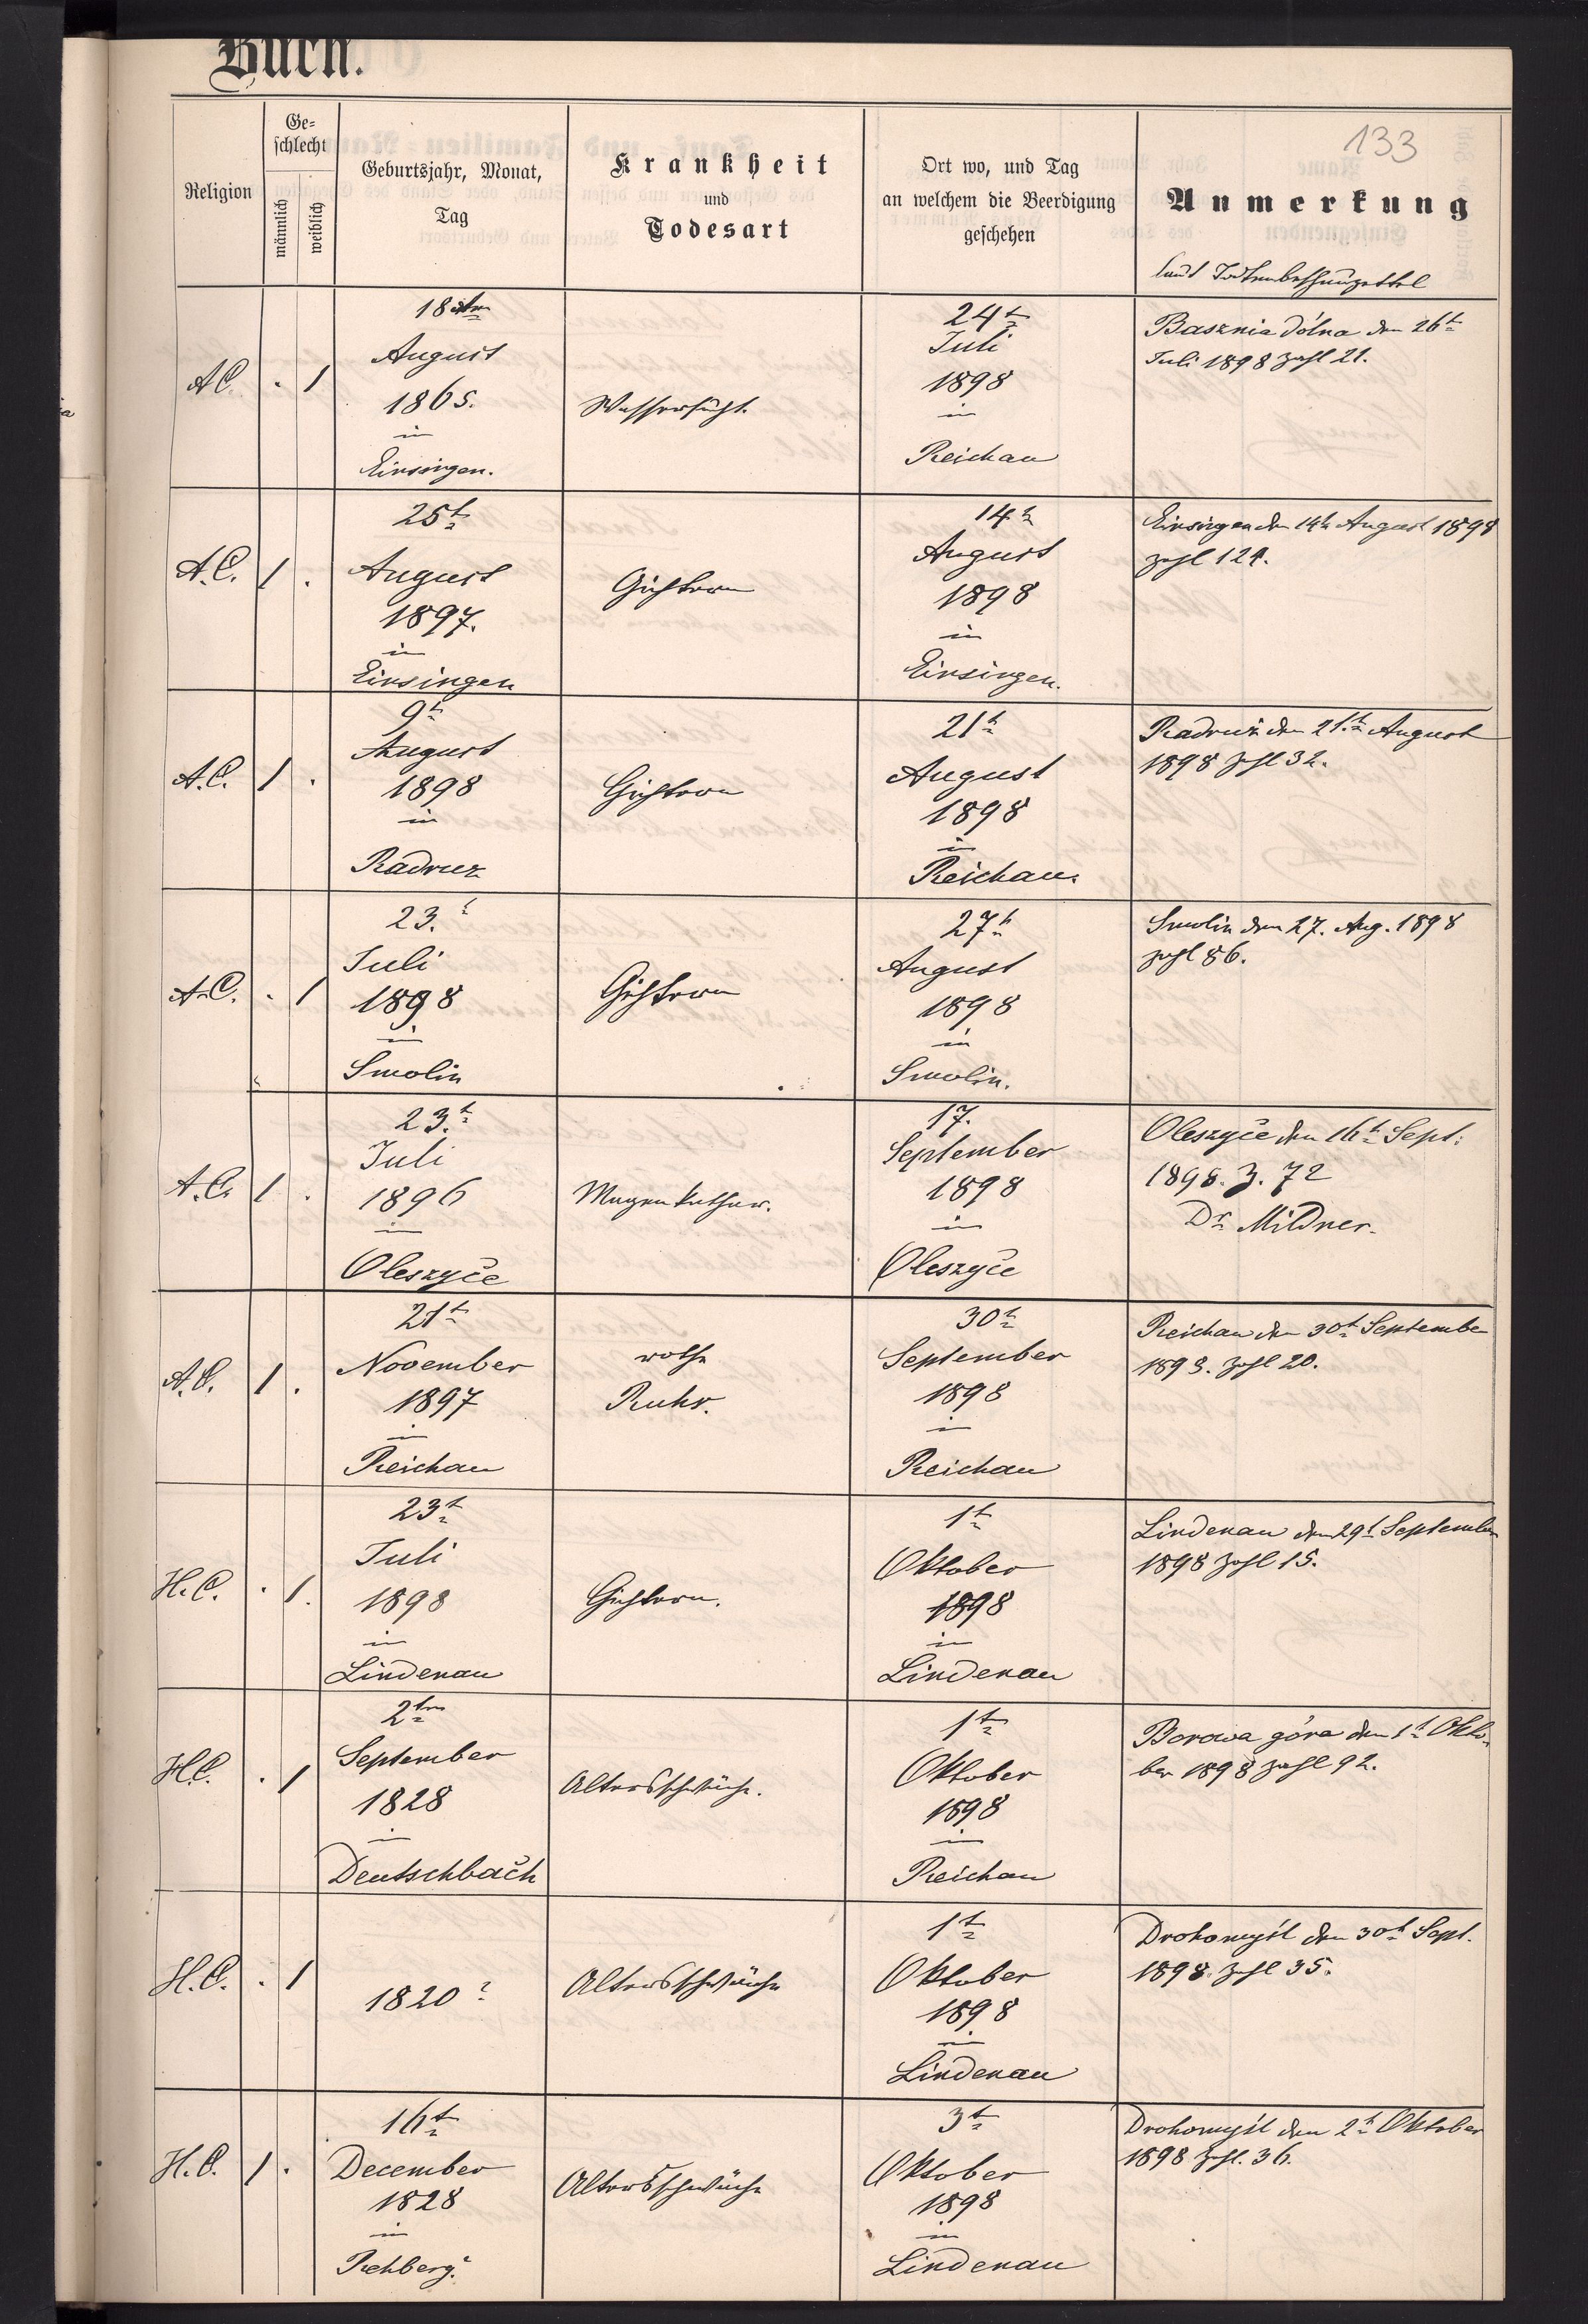 Buch.
133
Religion
Ge-
schlecht
männlich
weiblich
Geburtsjahr, Monat,
Tag
Krankheit
und
Todesart
Ort wo, und Tag
an welchem die Beerdigung
geschehen
Anmerkung
laut Todtenbeschauzettel
A.C. . 1
18ten
August
1865.
in
Einsingen.
Wassersucht.
24t
Juli
1898
in
Reichau
Basznia dólna den 26t
Juli 1898 Zahl 21.
A.C. 1 .
25t
August
1897.
in
Einsingen
Gichtern
14t
August
1898
in
Einsingen.
Einsingen den 14t August 1898
Zahl 124.
A.C. 1 .
9t
August
1898
in
Radruz
Gichtern
21t
August
1898
in
Reichau.
Radruż den 21.t August
1898 Zahl 32.
A.C. . 1
23.t
Juli
1898
in
Smolin
Gichtern
27t
August
1898
in
Smolin.
Smolin den 27. Aug. 1898
Zahl 86.
A.C. 1 .
23.t
Juli
1896
in
Oleszyce
Magenkathar.
17.
September
1898
in
Oleszyce
Oleszyce den 16t Sept:
1898. Z. 72
Dr. Mildner.
A.C. 1 .
21t
November
1897
in
Reichau
rothe
Ruhr.
30t
September
1898
in
Reichau
Reichau den 30t Septembe
1898. Zahl 20.
H.C. . 1.
23t
Juli
1898
in
Lindenau
Gichtern.
1t
Oktober
1898
in
Lindenau
Lindenau den 29t September
1898 Zahl 15.
H.C. . 1
2ten
September
1828
in
Deutschbach
Altersschwäche.
1t
Oktober
1898
in
Reichau
Borowa góra den 1t Okto-
ber 1898 Zahl 92.
H.C. . 1
1820?
Altersschwäche
1t
Oktober
1898
in
Lindenau
Drohomyśl den 30t Sept.
1898. Zahl 35.
H.C. 1 .
16t
December
1828
in
Rehberg.
Altersschwäche
3t
Oktober
1898
in
Lindenau
Drohomyśl den 2t Oktober
1898 Zahl. 36.